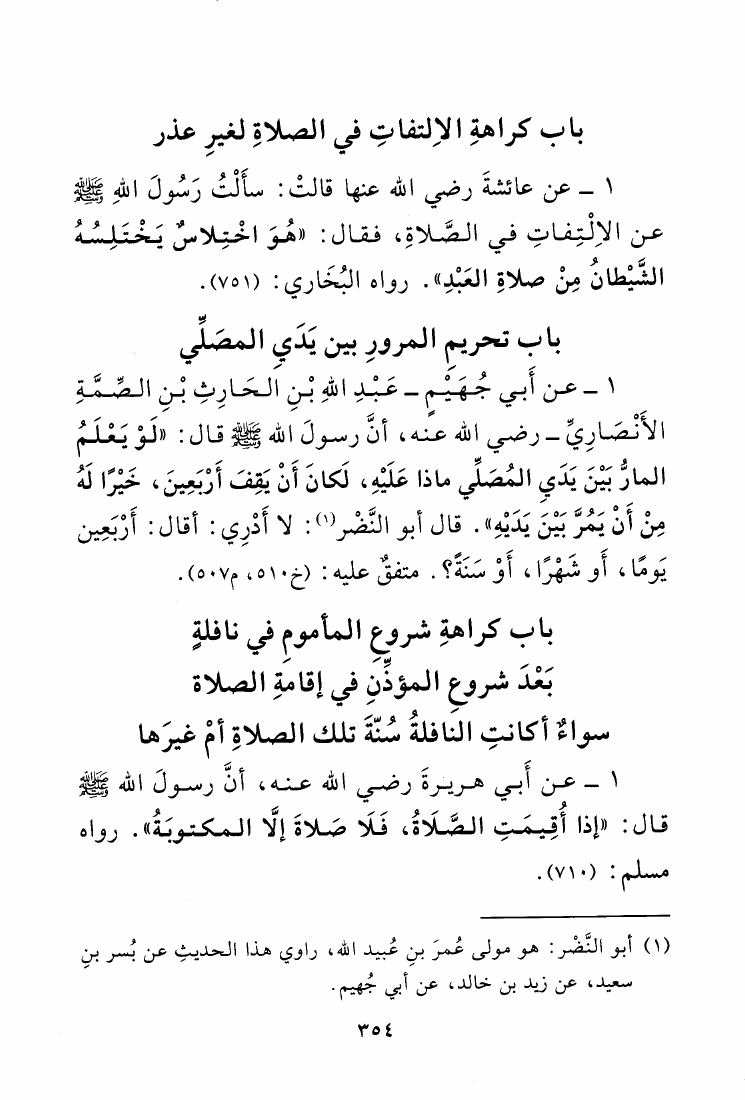 باب كراهةِ الاِلتفاتِ في الصلاةِ لغيرِ عذر
١ ـ عن عائشةَ رضي الله عنها قالتْ: سألْتُ رَسُولَ اللهِ ﷺ
عن الاِلْتِفـاتِ فـي الـصَّلاةِ، فقـال: «هُـوَ اخْتِلاسٌ يَـخْتَلِسُـهُ
الشَّيْطانُ مِنْ صلاةِ العَبْدِ». رواه البُخَاري: (٧٥١).
باب تحريمِ المرورِ بين يَدَيِ المصَلِّي
١ ـ عـن أَبـي جُهَيْـمٍ ـ عَبْـدِ اللهِ بْـنِ الـحَـارِثِ بْـنِ الـصِّمَّـةِ
الأَنْصَارِيِّ ـ رضي الله عنـه، أنَّ رسولَ الله ﷺ قال: «لَوْ يَعْلَمُ
المارُّ بَيْنَ يَدَيِ المُصَلِّي ماذا عَلَيْهِ، لَكانَ أَنْ يَقِفَ أَرْبَعِينَ، خَيْرًا لَهُ
مِنْ أَنْ يَمُرَّ بَيْنَ يَدَيْهِ». قال أبو النَّضْر(١): لا أَدْرِي: أقال: أَرْبَعِين
يَومًا، أو شَهْرًا، أوْ سَنَةً؟. متفقٌ عليه: (خ٥١٠، م٥٠٧).
باب كراهةِ شروعِ المأمومِ في نافلةٍ
بَعْدَ شروعِ المؤذِّنِ في إقامةِ الصلاة
سواءٌ أكانتِ النافلةُ سُنَّةَ تلك الصلاةِ أمْ غيرَها
١ ـ عـن أبـي هـريـرةَ رضـي الله عـنـه، أنَّ رسـولَ الله ﷺ
قال: «إذا أُقِيمَتِ الصَّلَاةُ، فَلَا صَلاةَ إلَّا المكتوبَةُ». رواه
مسلم: (٧١٠).
(١) أبو النَّضْر: هو مولى عُمرَ بنِ عُبيد الله، راوي هذا الحديثِ عن بُسر بنِ
سعيد، عن زيد بن خالد، عن أبي جُهيم.
٣٥٤